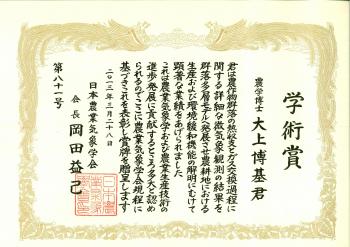 学術賞
農学博士 大上博基君
君は農作物群落の熱収支とガス交換過程に
関する詳細な微気象観測の結果を
群落多層モデルへ発展させ農耕地における
生産および環境緩和機能の解明にむけて
顕著な業績をあげられました
これは農業気象学および農業生産技術の
進歩発展に貢献するところ多大と認め
られるのでここに農業気象学会規程に
基づきこれを表彰し賞牌を贈呈します
二〇一三年三月二十八日
日本農業気象学会
会長 岡田益己
第八十一号